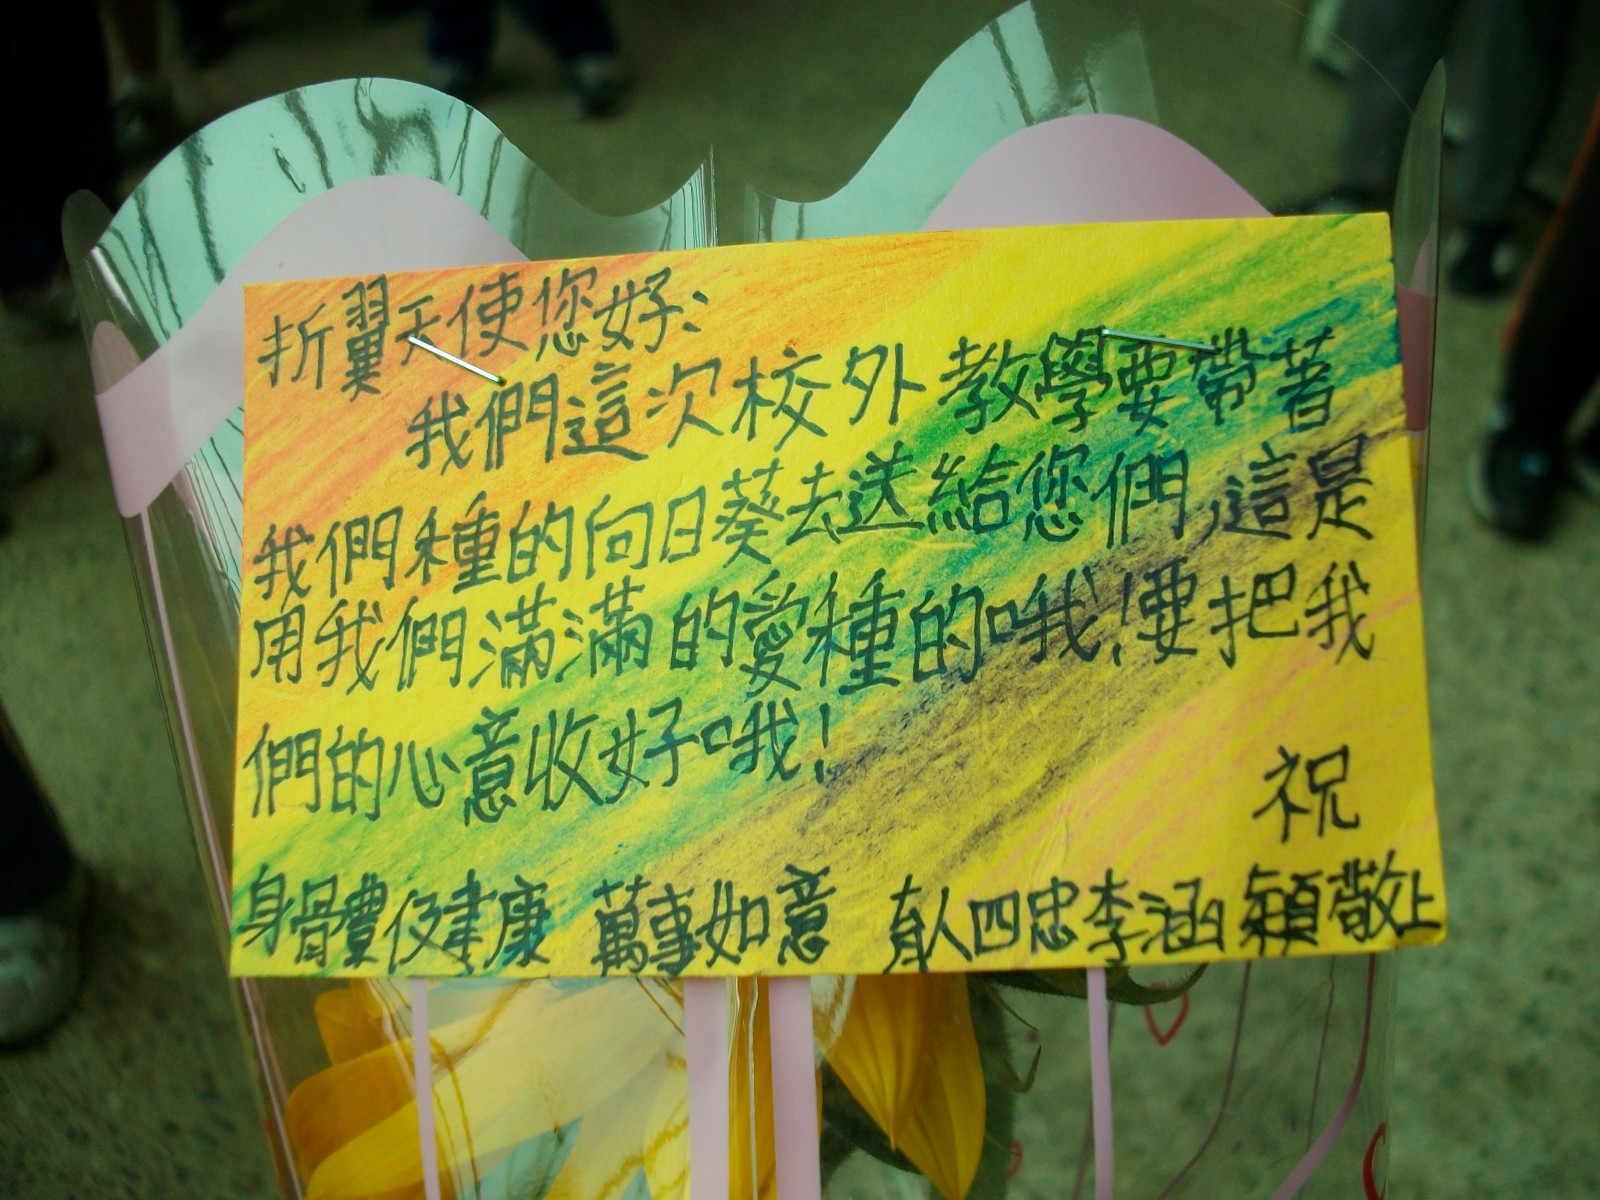 折翼天使您好:
我們這次校外教學要帶著
我們種的向日葵去送給您們,這是
用我們滿滿的愛種的哦!要把我
們的心意收好哦!
祝
身體健康 萬事如意 有人四忠李涵穎敬上